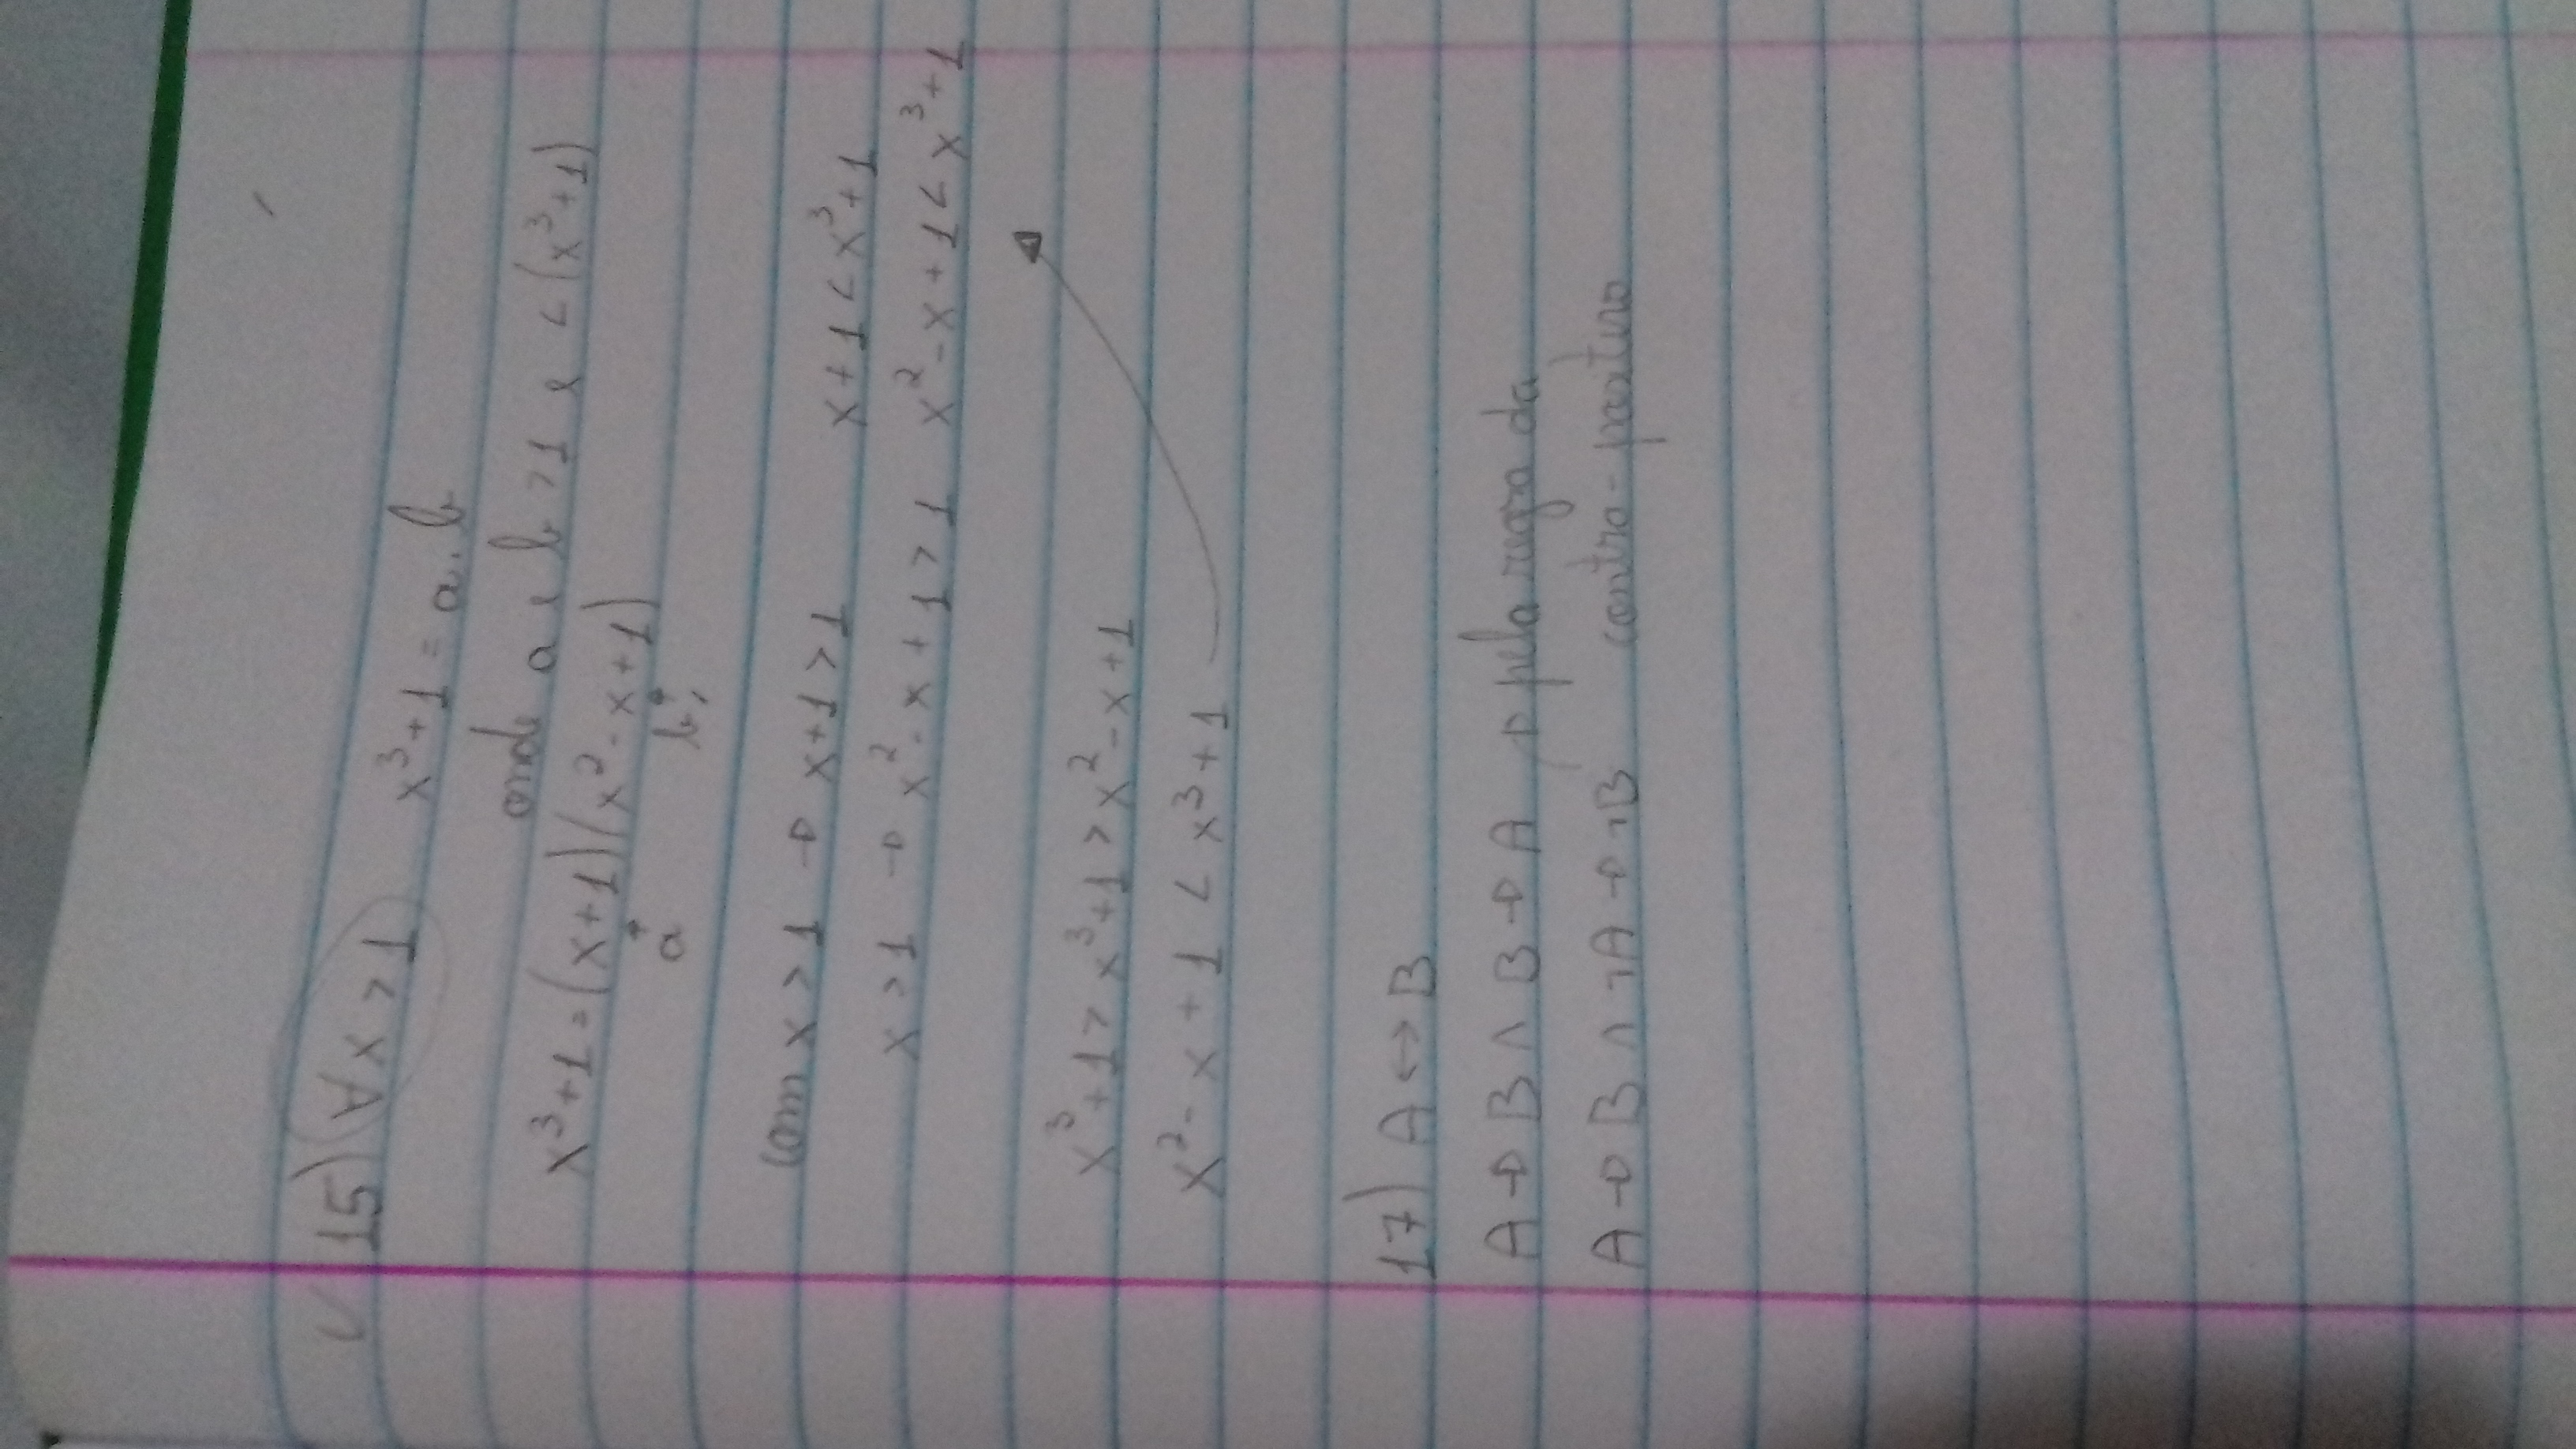 15) ∀x > 1 x³+1 = a.b
onde a e b >1 e < (x³+1)
x³+1 = (x+1)(x²-x+1)
a b
com x > 1 → x+1 > 1 x+1 < x³+1
x > 1 → x²-x+1 > 1 x²-x+1 < x³+1
x³+1 > x³+1 > x²-x+1
x²-x+1 < x³+1
17) A ↔ B
A → B ∧ B → A → pela regra da
A → B ∧ ¬A → ¬B contra-positiva